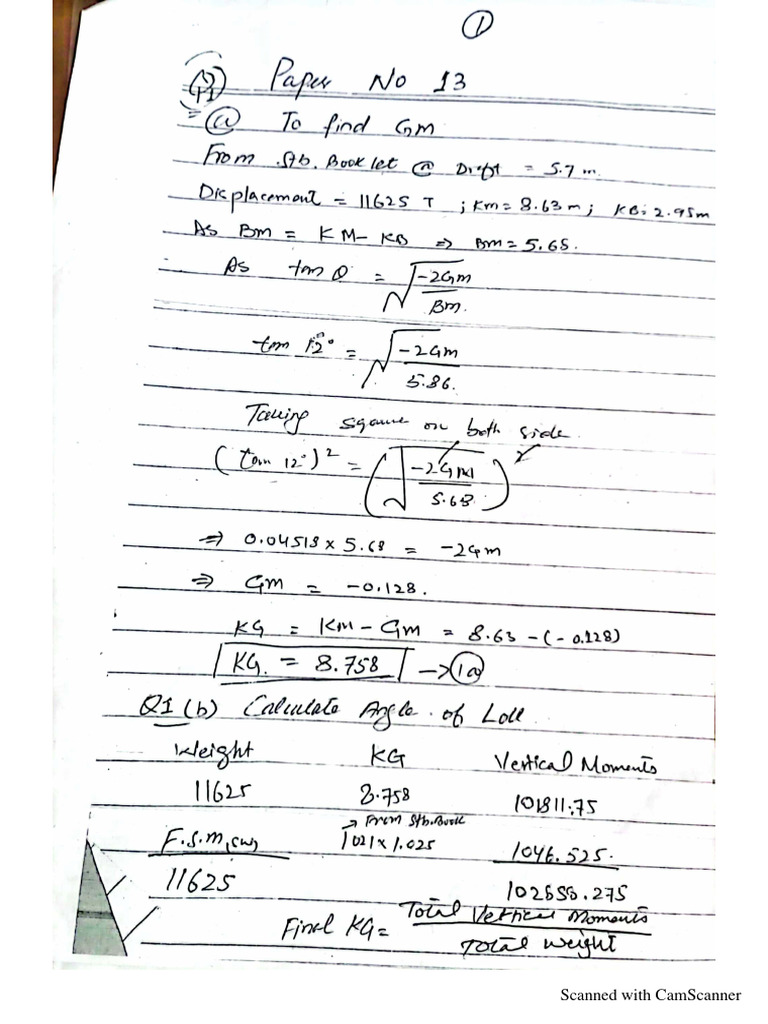 ①
Q1 Paper No 13
(a) To find GM
From Stb. Booklet @ Draft = 5.7 m.
Displacement = 11625 T ; KM = 8.63 m ; KB = 2.95m
As BM = KM - KB ⇒ BM = 5.68.
As tan θ = √(-2GM / BM)
tan 12° = √(-2GM / 5.86)
Taking square on both side
(tan 12°)² = (√(-2GM / 5.68))²
⇒ 0.04518 x 5.68 = -2GM
⇒ GM = -0.128.
KG = KM - GM = 8.63 - (-0.128)
KG = 8.758 → 1a
Q1 (b) Calculate Angle of Loll
Weight KG Vertical Moments
11625 8.758 101811.75
→ From Stb. Book
F.S.M. (sw) 1021 x 1.025 1046.525
11625 102858.275
Final KG = Total Vertical Moments / Total weight
Scanned with CamScanner